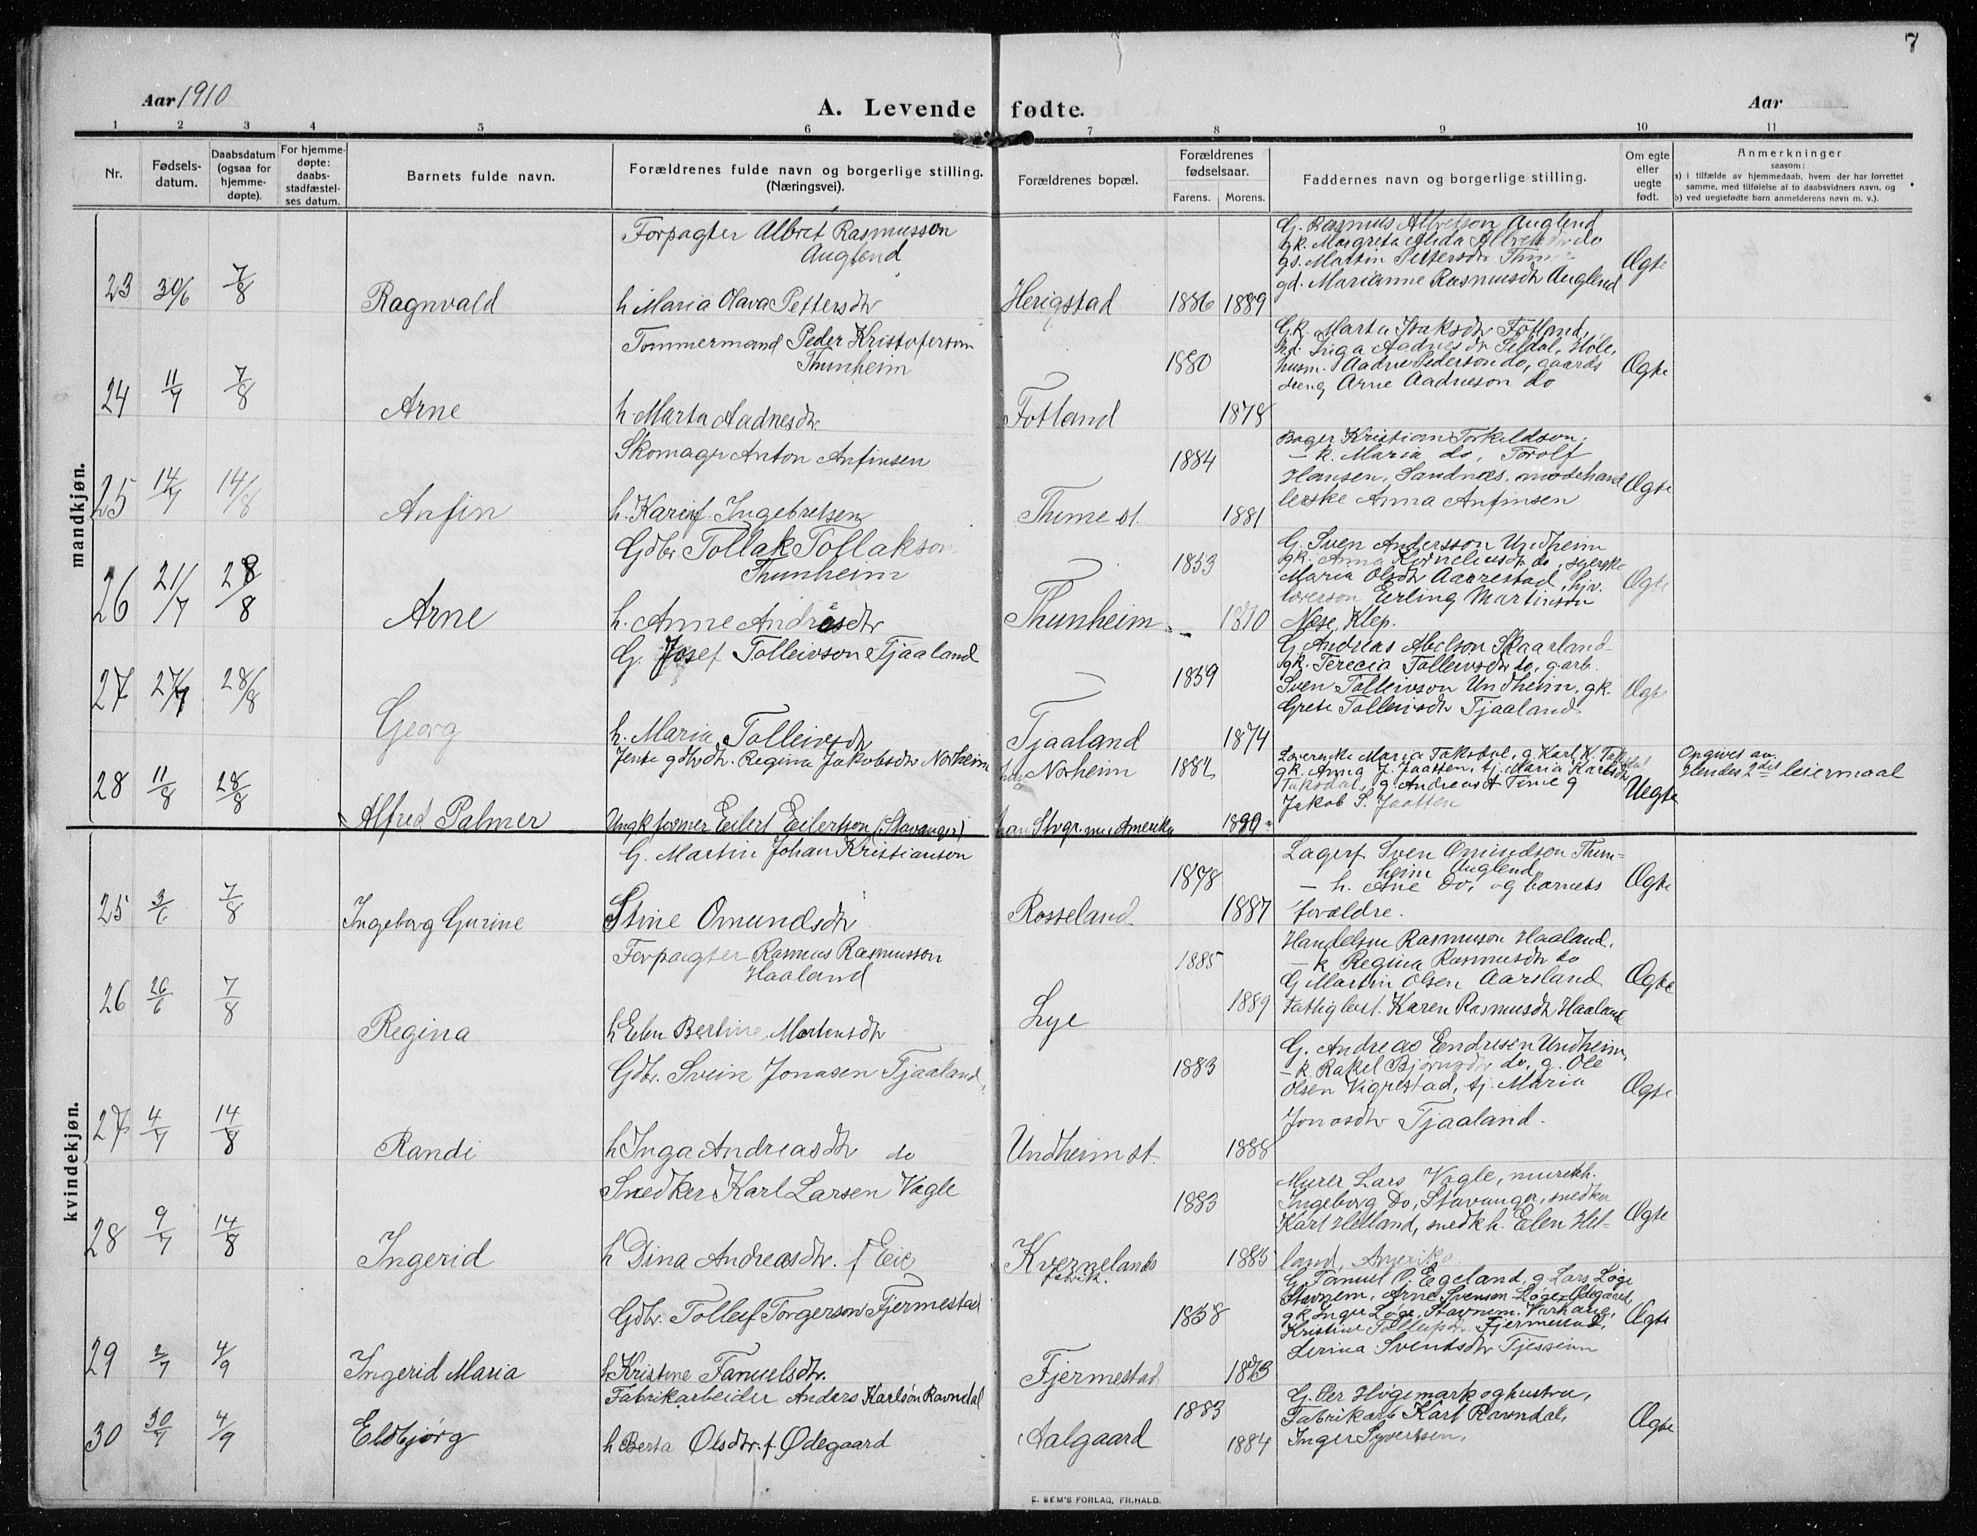 7
Aar 1910
A. Levende fødte.
Aar
1 2 3 4 5 6 7 8 9 10 11
Nr.
Fødsels-
datum.
Daabsdatum
(ogsaa for
hjemme-
døpte).
For hjemme-
døpte:
daabs-
stadfæstel-
ses datum.
Barnets fulde navn.
Forældrenes fulde navn og borgerlige stilling.
(Næringsvei).
Forældrenes bopæl.
Forældrenes
fødselsaar.
Farens. Morens.
Faddernes navn og borgerlige stilling.
Om egte
eller
uegte
født.
Anmerkninger
saasom:
a) i tilfælde av hjemmedaab, hvem der har forrettet
samme, med tilføielse af to daabsvidners navn, og
b) ved uegtefødte barn anmelderens navn m. v.).
mandkjøn.
23 30/6 7/8 Ragnvald
Forpagter Albret Rasmusson
Auglend
h Maria Olava Pettersdtr
Herigstad 1886 1889
G. Rasmus Albretson Auglend
gk. Margrita Alida do
gs. Martin
gd. Marianne Rasmusdtr Auglend
Ægte
24 11/7 7/8 Arne
Tømmermand Peder Kristoferson
Thunheim
h. Marta Aadnesdtr
Fotland 1880 1878
Gk. Marta Isaksdtr Fotland,
Inga Aadnesdtr Seldal, Høle,
husm. Aadne Pederson do, gaards
dreng Arne Aadneson do
Ægte
25 14/7 14/8 Anfin
Skomagr Anton Anfinsen
h. Karin f. Ingebretsen
Thime st. 1884 1881
Bager Kristian Torkeldson,
— k. Maria do, Torolf
Hansen, Sandnes, modehand
lerske Anna Anfinsen
Ægte
26 21/7 28/8 Arne
Gdbr Tollak Tollakson
Thunheim
h. Anne Andreasdtr
Thunheim 1853 1870
G. Sven Andersson Undheim
gk. Anna Korneliusdtr do, syerske
Maria Olsdtr Aarrestad, hjv.
Erling Martinson
Næse, Klep.
Ægte
27 27/7 28/8 Georg
G. Josef Tolleivson Tjaaland
h. Maria Tolleivsdtr
Tjaaland 1859 1874
G Andreas Abelson Skaarland
gk. Terecia Tolleivsdtr do, g arb.
Sven Tolleivson Undheim, gk.
Grete Tolleivsdtr Tjaaland
Ægte
28 11/8 28/8 Alfred Palmer
Jente gdbrdtr. Regina Jakobsdtr Norheim
Ungk former Eilert Eilertson (Stavanger)
hun Norheim 1882
han Stvgr. nu Amerika 1890
Maria Taksdal, g. Karl K. Taksdal
gk. Anna J. Jaatten, tj. Maria Karlsdtr
Taksdal, g. Andreas A Time g
Jakob S. Jaatten
Uegte
Opgives an
hendes 2det leiermaal
kvindekjøn.
25 3/6 7/8 Ingeborg Gurine
G. Martin Johan Kristianson
Stine Omundsdtr
Rosseland 1878 1887
Lagerf Sven Omundson Thun-
heim Auglend
— h. Ane Do, og barnets
forældre.
Ægte
26 26/6 7/8 Regina
Forpagter Rasmus Rasmusson
Haaland
h Elen Bertine Mortensdtr
Lye 1885 1889
Handelsm Rasmuson Haaland,
— k Regina Rasmusdtr do
G Martin Olsen Aarsland
Fattigbest. Karen Rasmusdtr Haaland
Ægte
27 4/7 14/8 Randi
Gdbr. Svein Jonasen Tjaaland,
h Inga Andreasdtr do
Undheim st. 1883 1888
G. Andreas Endresen Undheim,
— k. Rakel Bjørnsdtr do, g. Ole
Olsen Vigrestad, tj. Maria
Jonasdtr Tjaaland.
Ægte
28 9/7 14/8 Ingerid
Snedker Karl Larsen Vagle
h Dina Andreasdtr. f Eie
Kvernelands
fabrik. 1883 1885
Murer Lars Vagle, murerkh.
Ingeborg Do, Stavanger, snedker
Karl Helland, snedkh. Elen Hel-
land, Amerika
Ægte
29 2/7 4/9 Ingerid Maria
Gdbr. Tolleif Torgerson Fjermestad
h Kristine Famuelsdtr.
Fjermestad 1858 1873
G. Famuel O. Egeland, g Lars Løge
Stavnem, Arne Svenson Løge-Ødegaard,
gk Inger Løge, Stavnem. Varhaug,
Kristine Tolleifsdtr. Fjermestad,
Serina Svendsdtr Tjessem
Ægte
30 30/7 4/9 Eldbjørg
Fabrikarbeider Anders Karlsøn Ravndal
h Berta Olsdtr. f. Ødegaard
Aalgaard 1883 1884
G. Per Høgemark og hustru,
Fabrikarb Karl Ravndal,
Inger Syvertsen.
Ægte
E. SEM'S FORLAG, FR.HALD.